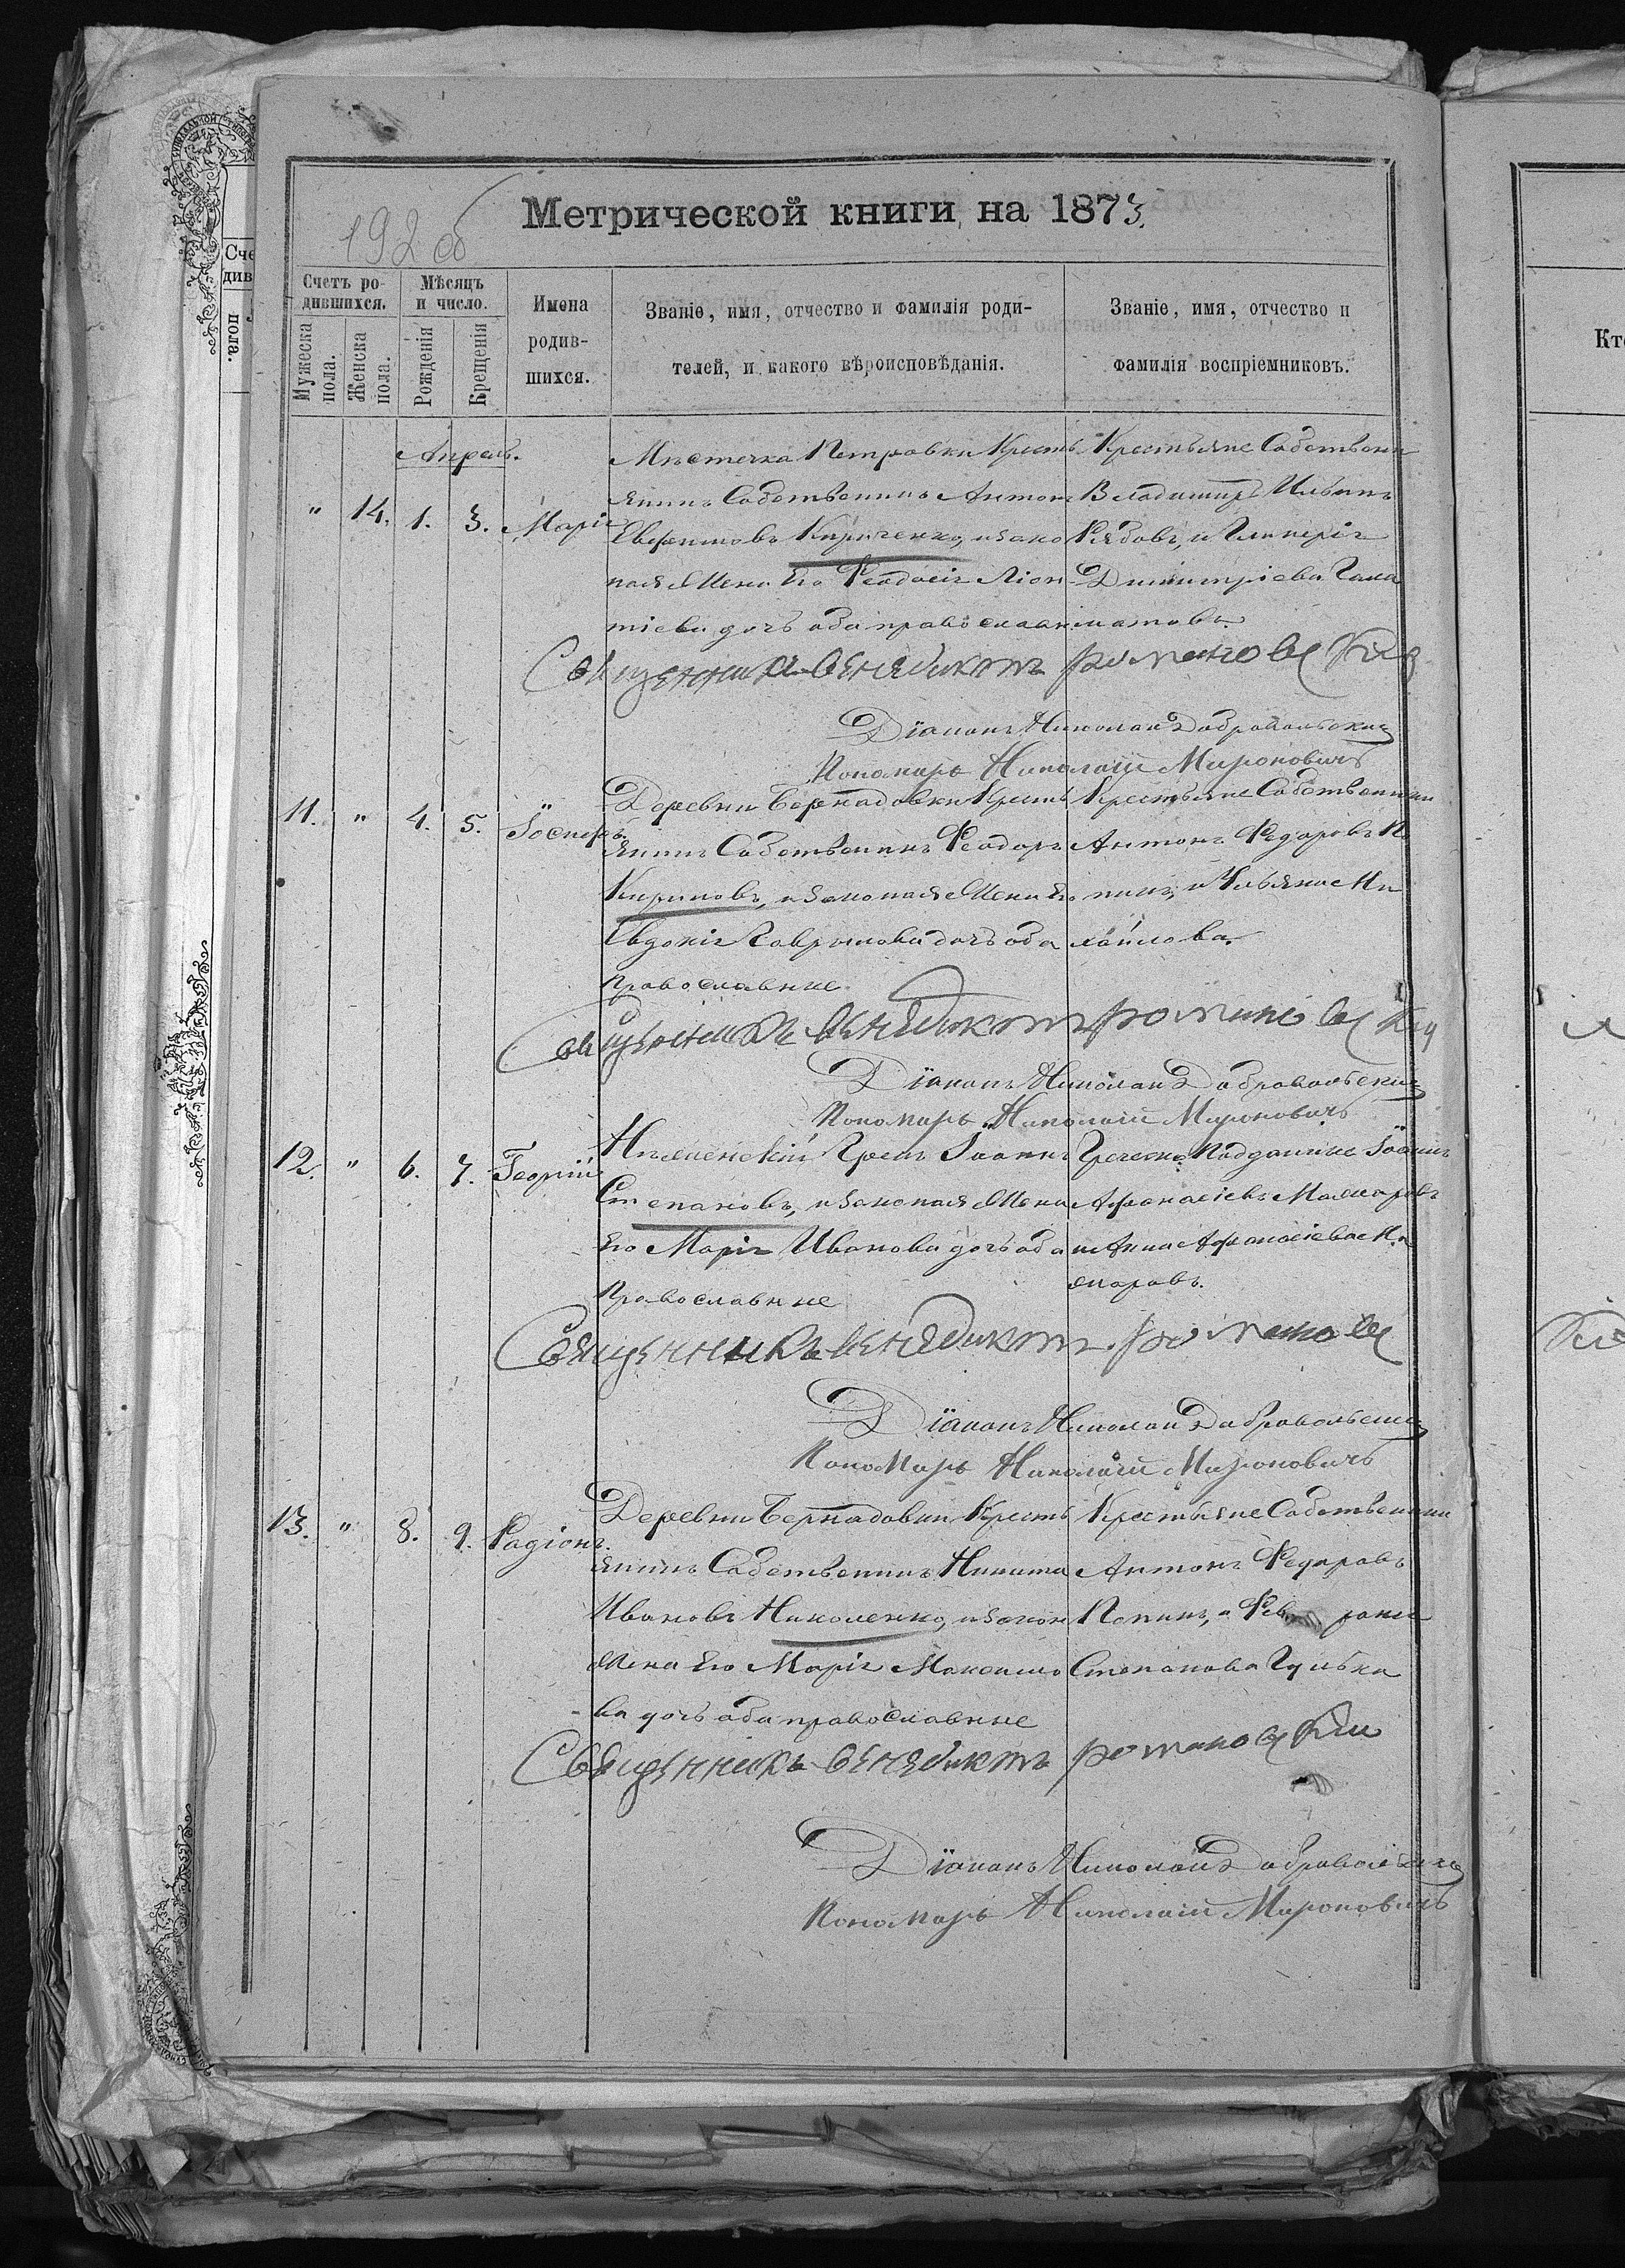 192 об
Метрической книги, на 1873.
Счетъ ро-
дившихся.
Мужеска
пола.
Женска
пола.
Мѣсяцъ
и число.
Рожденія
Крещенія
Имена
родив-
шихся.
Званіе, имя, отчество и фамилія роди-
телей, и какого вѣроисповѣданія.
Званіе, имя, отчество и
фамилія воспріемниковъ.
Апрель.
" 14. 1. 3. Марія
Мѣстечка Петровки Кресть
янинъ Собственникъ Антонъ
Евфимовъ Кириченко, и зако
ная Жена Его Феодосія Леон
тіева дочь оба православн.
Крестьяне Собствени
Владимиръ Ильинъ
Рябовъ, и Гликерія
Димитріева
Священникъ Венедиктъ Романовскій
Діаконъ Николай Добровольский
Пономарь Николай Мироновичъ
11. " 4. 5. Іосифъ.
Деревни Бернадовки Кресть
янинъ Собственикъ Феодоръ
Кириковъ, и законая Жена Его
Евдокія Гаврилова дочь оба
православные
Крестьяне Собственики
Антонъ Федоровъ По
пикъ, и Ульяна Ми
хайлова
Священникъ Венедиктъ Романовский
Діаконъ Николай Добровольский
Пономарь Николай Мироновичъ
12. " 6. 7. Георгій
Нѣженскій Грекъ Іоаннъ
Степановъ, и законая Жена
Его Марія Иванова дочь оба
Православные
Греческо Подданные Іоаннъ
Афанасіевъ
и Анна Афанасіева
Священникъ Венедиктъ Романовс
Діаконъ Николай Добровольский
Пономарь Николай Мироновичъ
13. " 8. 9. Радіонъ.
Деревни Бернадовки Кресть
янинъ Собственикъ Никита
Ивановъ Николенко, и закон
Жена Его Марія Максимо
ва дочь оба православные
Крестьяне Собственики
Антонъ Федоровъ
Попикъ, и
Степанова Гулька
Священникъ Венедиктъ Романовский
Діаконъ Николай Добровольский
Пономарь Николай Мироновичъ